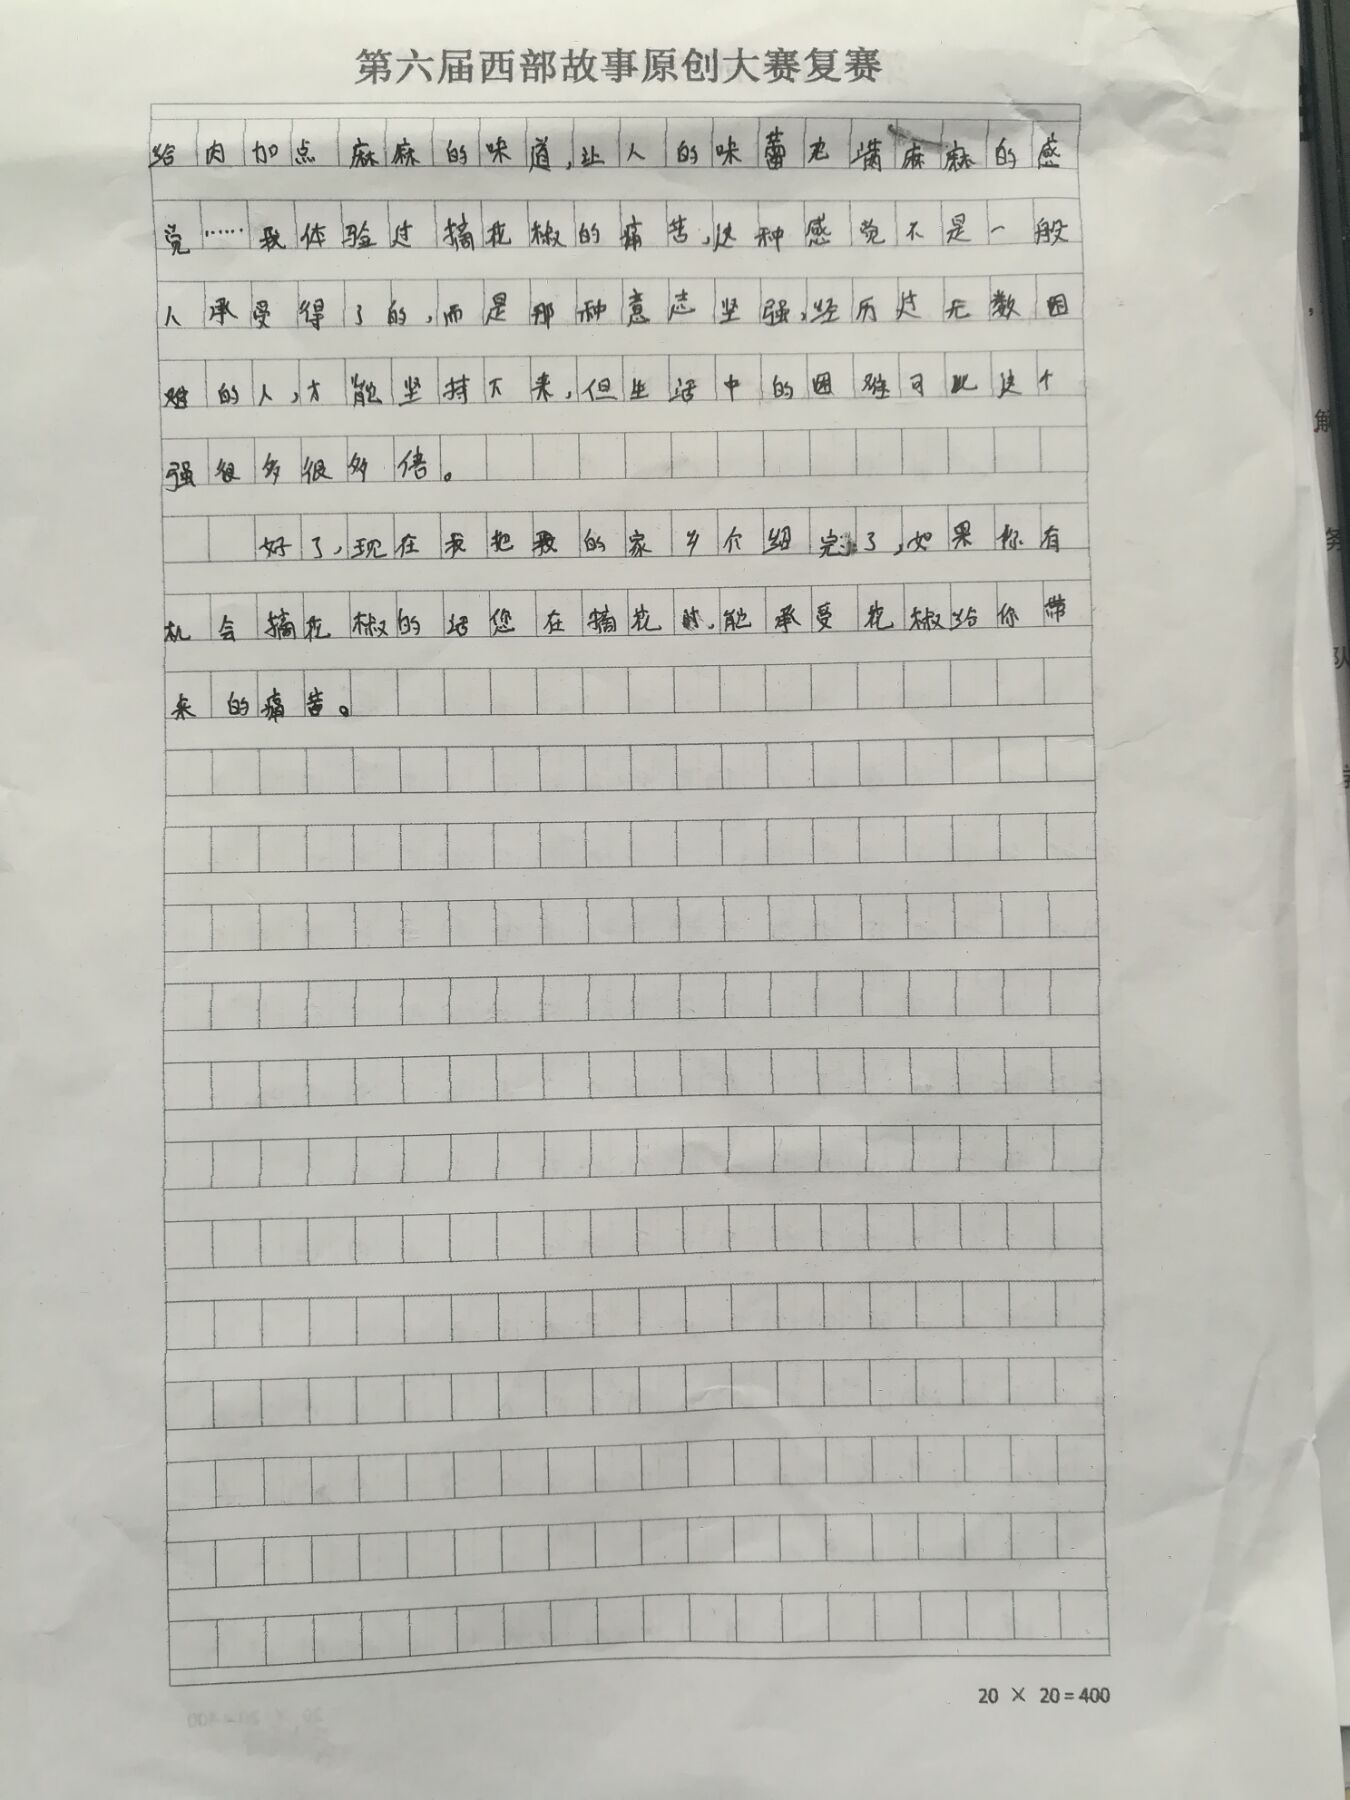 第六届西部故事原创大赛复赛
给肉加点麻麻的味道,让人的味蕾充满麻麻的感
觉……我体验过摘花椒的痛苦,这种感觉不是一般
人承受得了的,而是那种意志坚强,经历过无数困
难的人,才能坚持下来,但生活中的困难可比这个
强很多很多倍。
好了,现在我把我的家乡介绍完了,如果你有
机会摘花椒的话您在摘花时,能承受花椒给你带
来的痛苦。
20 × 20=400